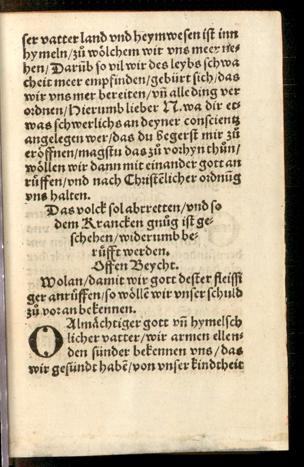 ser vatter land vnd heymwesen ist inn
hymeln/zů wölchem wir vns meer ne-
hen/Darüb so vil wir des leybs schwa
cheit meer empfinden/gebürt sich/das
wir vns mer bereiten/vn̄ alle ding ver
ordnen/Hierumb lieber N.wa dir et-
was schwerlichs an deyner conscientz
angelegen wer/das du begerst mir zů
eröffnen/magstu das zů vorhyn thůn/
wöllen wir dann mit einander gott an
růffen/vnd nach Christēlicher ordnūg
vns halten.
Das volck sol abtretten/vnd so
dem Krancken gnůg ist ge-
schehen/widerumb be-
růfft werden.
Offen Beycht.
Wolan/damit wir gott dester fleissi
ger anrüffen/so wöllē wir vnser schuld
zů voran bekennen.
O Almächtiger gott vn̄ hymelsch
licher vatter/wir armen ellen-
den sünder bekennen vns/das
wir gesündt habē/von vnser kindtheit